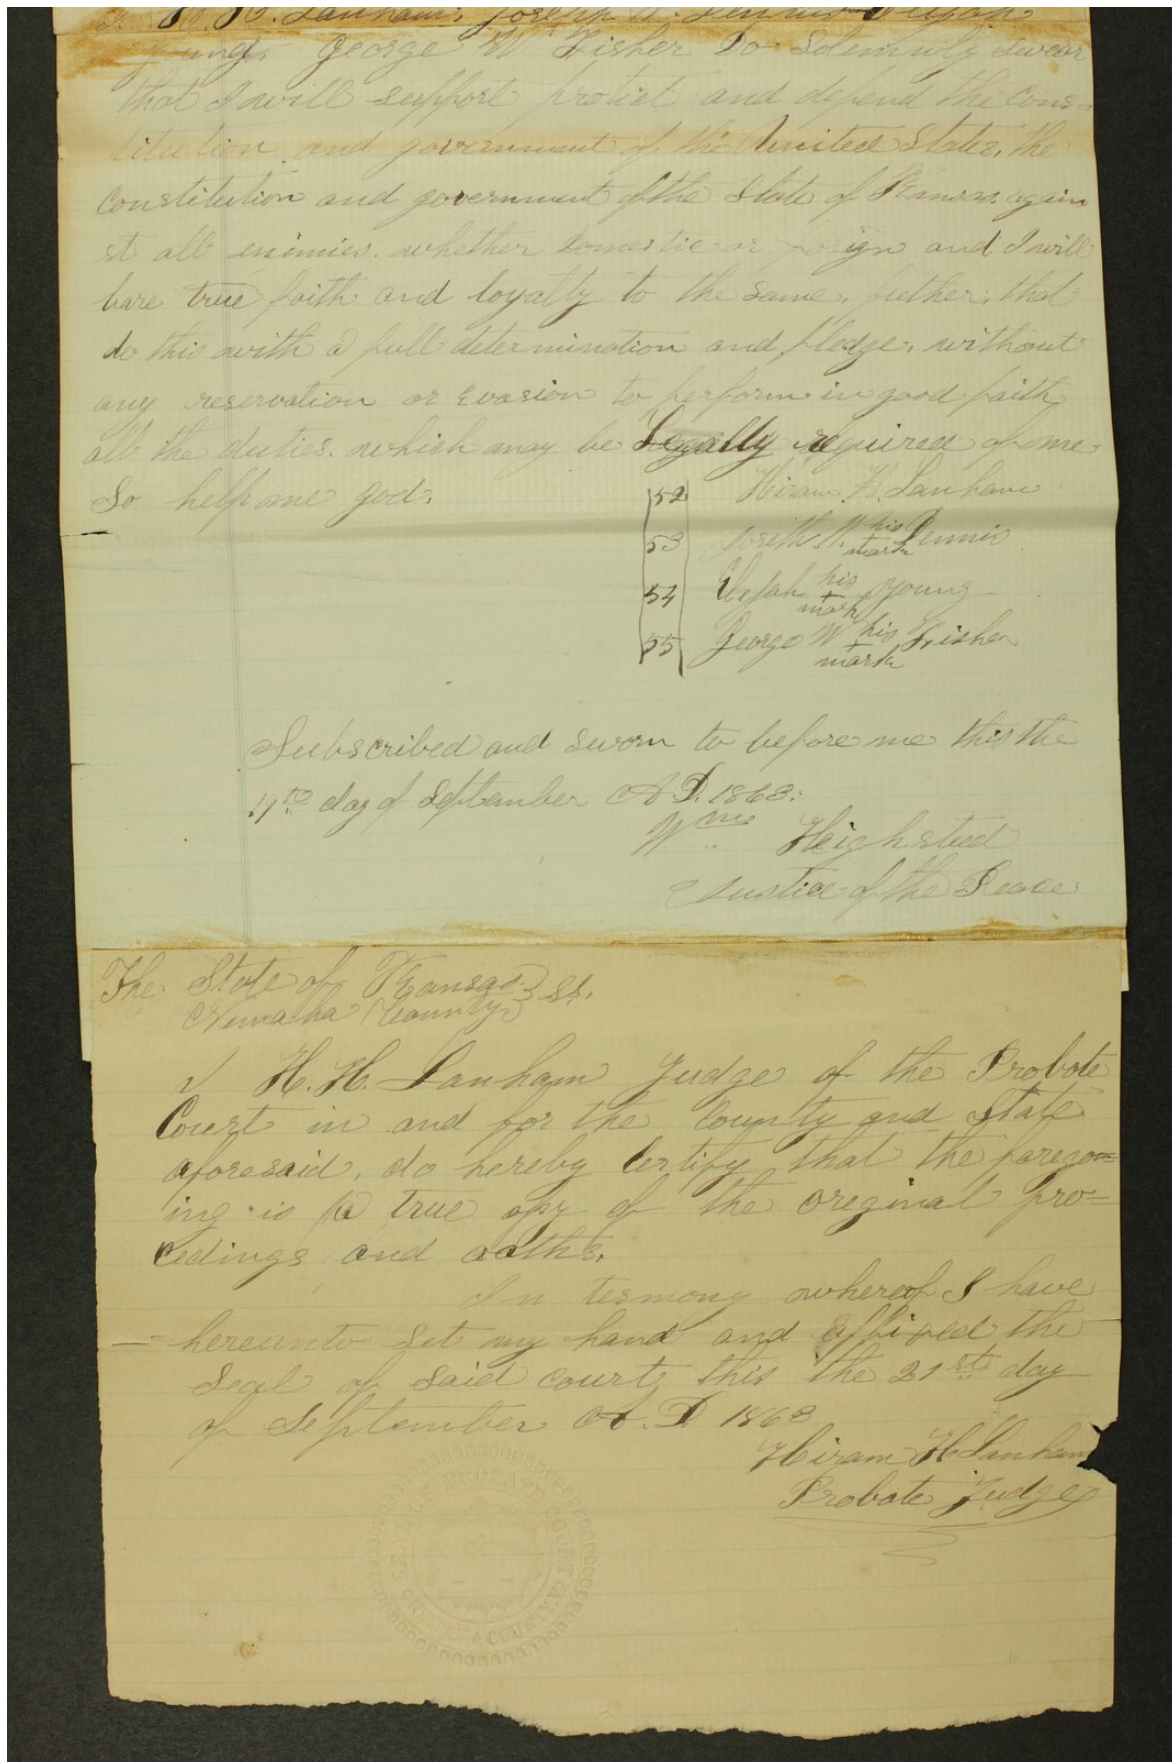 I. H. H. Lanham, Joseph W. Dennis Elijah
young, George W Fisher Do Solemnly Swear
that I will support protect and defend the Cons=
titution and government of the United States, the
Constitution and government of the State of Kansas, again
st all enimies. whether domestic or foreign and I will
bare true faith and loyalty to the same, futher, that
do this with a full determination and pledge, without
any reservation or evasion to perform in good faith
all the duties. which may be Legally required of me
So help me god.
52 Hiram H. Lanham
53 W. his mark Dennis
54 Elijah his + mark young
55 George W his + mark Fisher
Subscribed and sworn to before me this the
19th day of September A.D. 1863.
Wm Heighsted
Justice of the Peace
The State of Kansas } SS.
Nemaha County }
I H. H. Lanham Judge of the Probate
Court in and for the County and State
aforesaid, do hereby Certify that the forego=
ing is a true opy of the oreginal pro=
cedings and oaths.
In termony whereof I have
hereunto set my hand and affixed the
Seal of said Court this the 21st day
of September A. D 1863
Hiram H Lanham
Probate Judge
SEAL OF PROBATE COURT